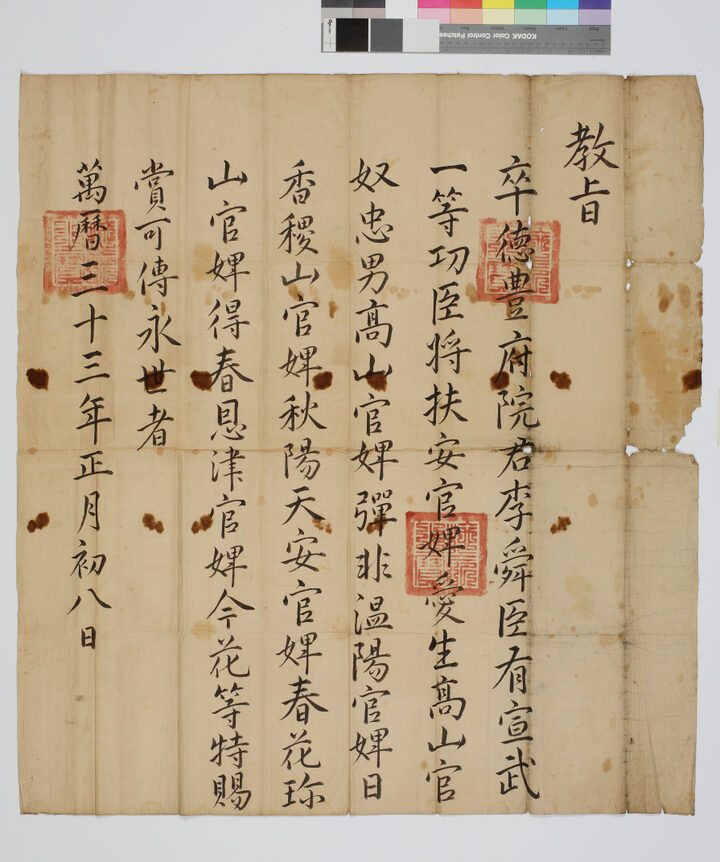 KODAK Color Control Patches
教旨
卒德豊府院君李舜臣有宣武
一等功臣将扶安官婢愛生高山官
奴忠男高山官婢彈非温陽官婢日
香稷山官婢秋陽天安官婢春花珎
山官婢得春恩津官婢今花等特賜
賞可傳永世者
萬曆三十三年正月初八日